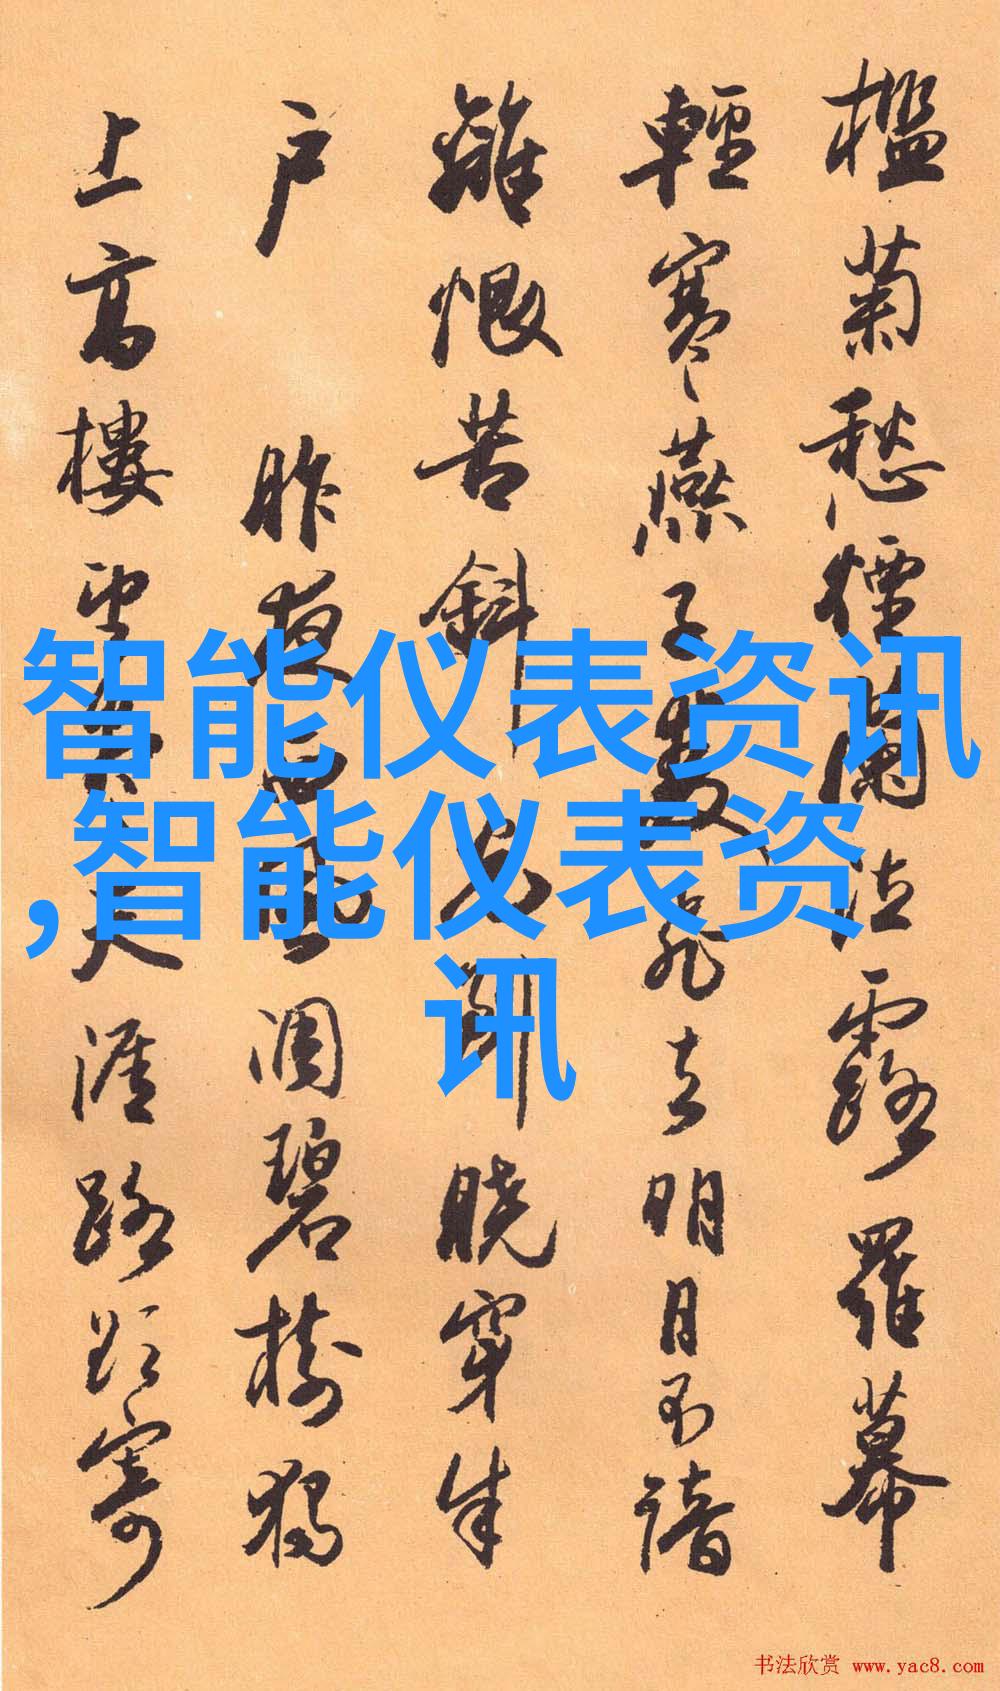 檻菊愁煙蘭泣露羅幕
輕寒燕子雙飛去明月不諳
離恨苦斜光到曉穿朱
户昨夜西風凋碧樹獨
上高樓望盡天涯路欲寄
智能仪表资讯
,智能仪表资
讯
书法欣赏 www.yac8.com